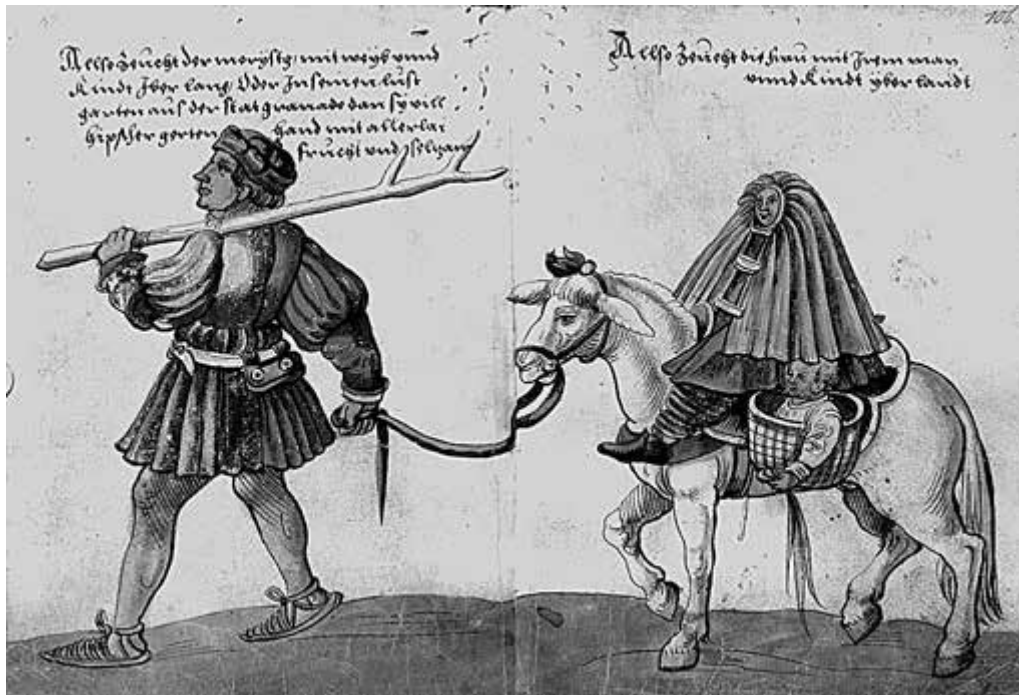 Allso zeucht der morystg mit weyb vnnd
Kindt Jber lang Oder Jn seinen lust
garten aus der stat granade dan sy vill
hipscher gerten hand mit allerlai
frucht vnd selzam
Allso zeucht die frau mit Jrem man
vnnd Kindt yber landt
106